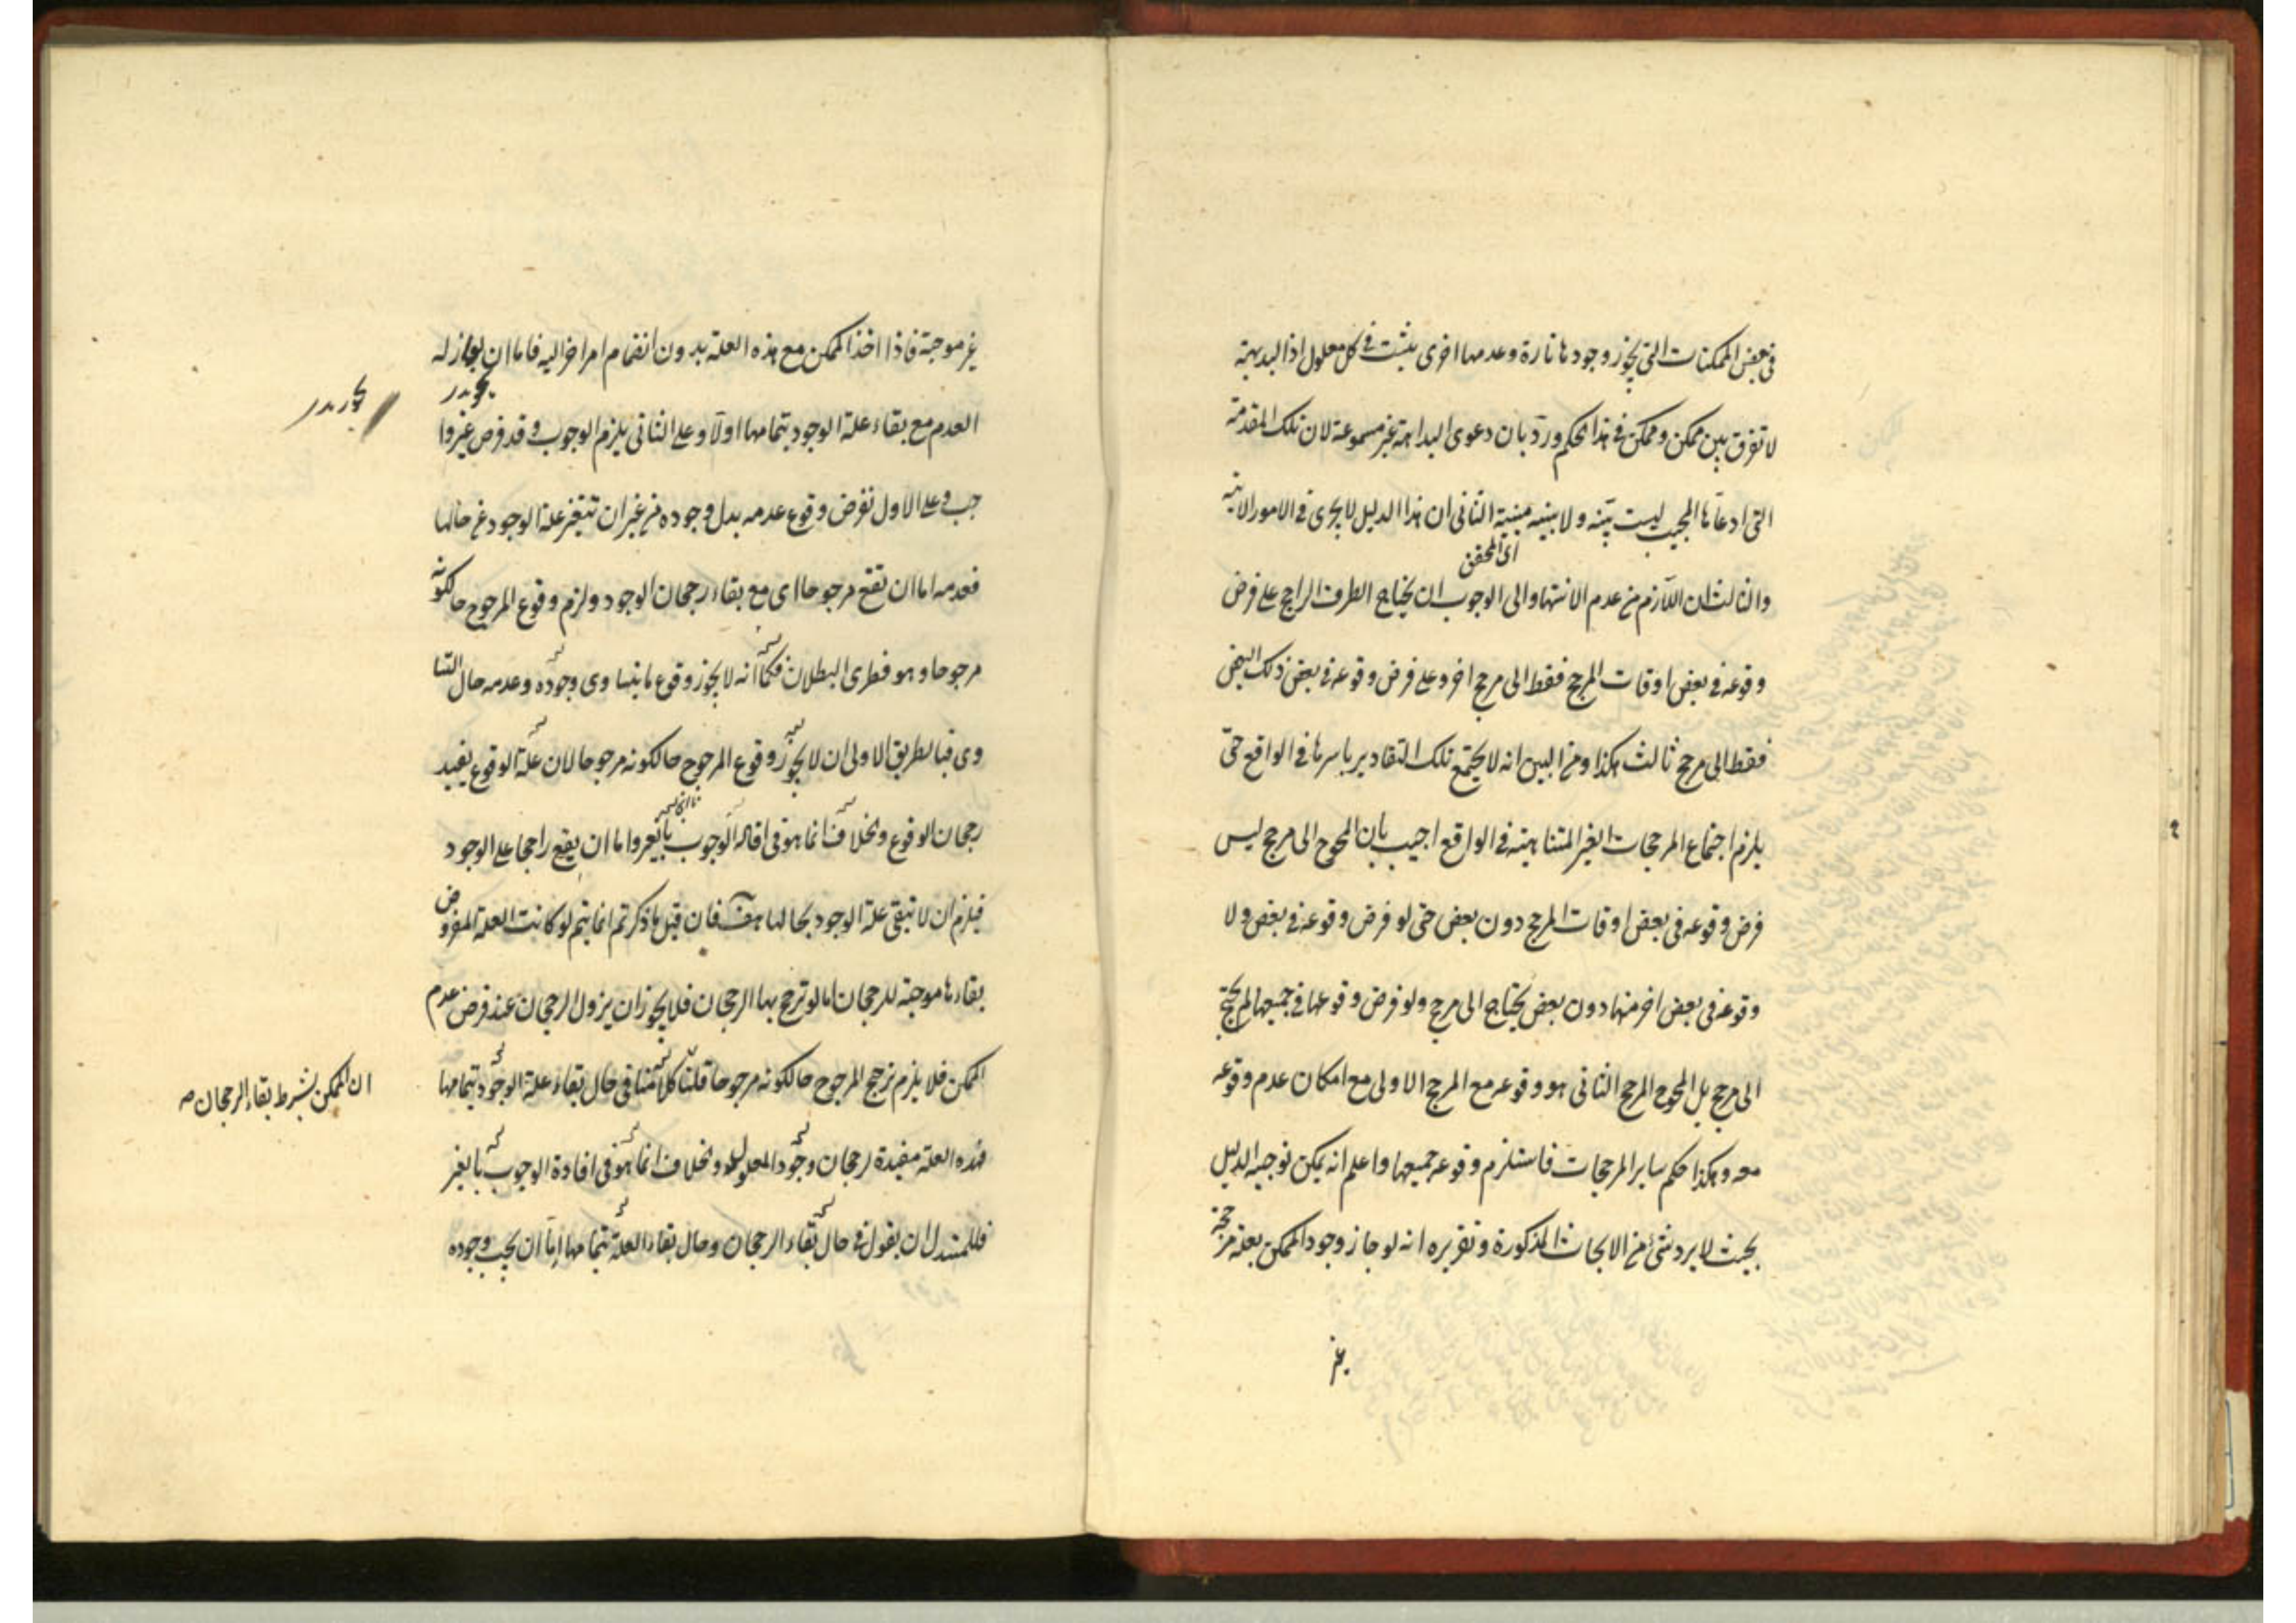 في بعض الممكنات التي يجوز وجودها تارة وعدمها اخرى يثبت في كل معلول اذ البديهة
لا تفرق بين ممكن وممكن في هذا الحكم ورد بان دعوى البداهة غير مسموعة لان تلك المقدمة
التي ادعاها المجيب ليست بينه ولا مبينة الثاني ان هذا الدليل لا يجرى في الامور الانية
اى المحقق
والثالث ان اللازم من عدم الانتهاء الى الوجوب ان يحتاج الطرف الراجح على فرض
وقوعه في بعض اوقات المرجح فقط الى مرجح اخر وعلى فرض وقوعه في بعض ذلك البعض
فقط الى مرجح ثالث هكذا ومن البين انه لا يجتمع تلك التقادير باسرها في الواقع حتى
يلزم اجتماع المرجحات الغير المتناهية في الواقع اجيب بان المحوج الى مرجح ليس
فرض وقوعه في بعض اوقات المرجح دون بعض حتى لو فرض وقوعه في بعض ولا
وقوعه في بعض اخر منها دون بعض يحتاج الى مرجح ولو فرض وقوعها في جميعها لم يحتج
الى مرجح بل المحوج المرجح الثاني هو وقوعه مع المرجح الاولى مع امكان عدم وقوعه
معه وهكذا حكم ساير المرجحات فاستلزم وقوعه جميعها واعلم انه يمكن توجيه الدليل
بحيث لا يرد شئ من الابحاث المذكورة وتقريره انه لو جاز وجود الممكن بعلة مرجحة
غير
غير موجبة فاذا اخذ الممكن مع هذه العلة بدون انضمام امر اخر اليه فاما ان يجوز له
العدم مع بقاء علة الوجود بتمامها اولا وعلى الثاني يلزم الوجوب وقد فرض غير وا
جب وعلى الاول نفرض وقوع عدمه بدل وجوده من غير ان تتغير علة الوجود عن حالها
فعدمه اما ان تقع مرجوحا اى مع بقاء رجحان الوجود ولزم وقوع المرجوح حالكونه
مرجوحا وهو فطرى البطلان فكما انه لا يجوز وقوع ما يتساوى وجوده وعدمه حال التسا
وى فبالطريق الاولى ان لا يجوز وقوع المرجوح حالكونه مرجوحا لان علة الوقوع يفيد
رجحان الوقوع والخلاف انما هو في افاده الوجوب واما ان يقع راجحا على الوجود
فيلزم ان لا تبقى علة الوجود بحالها هف فان قيل ما ذكرتم انما يتم لو كانت العلة المفروض
بقاءها موجبة للرجحان اما لو ترجح بها الرجحان فلا يجوز ان يزول الرجحان عند فرض عدم
الممكن فلا يلزم ترجح المرجوح حالكونه مرجوحا قلنا كلامنا في حال بقاء علة الوجود بتمامها
ان الممكن بشرط بقاء الرجحان صح
فهذه العلة مفيدة لرجحان وجود المعلول والخلاف انما هو في افادة الوجوب بالغير
فللمستدل ان يقول في حال بقاء الرجحان وحال بقاء العلة بتمامها اما ان يجب وجوده